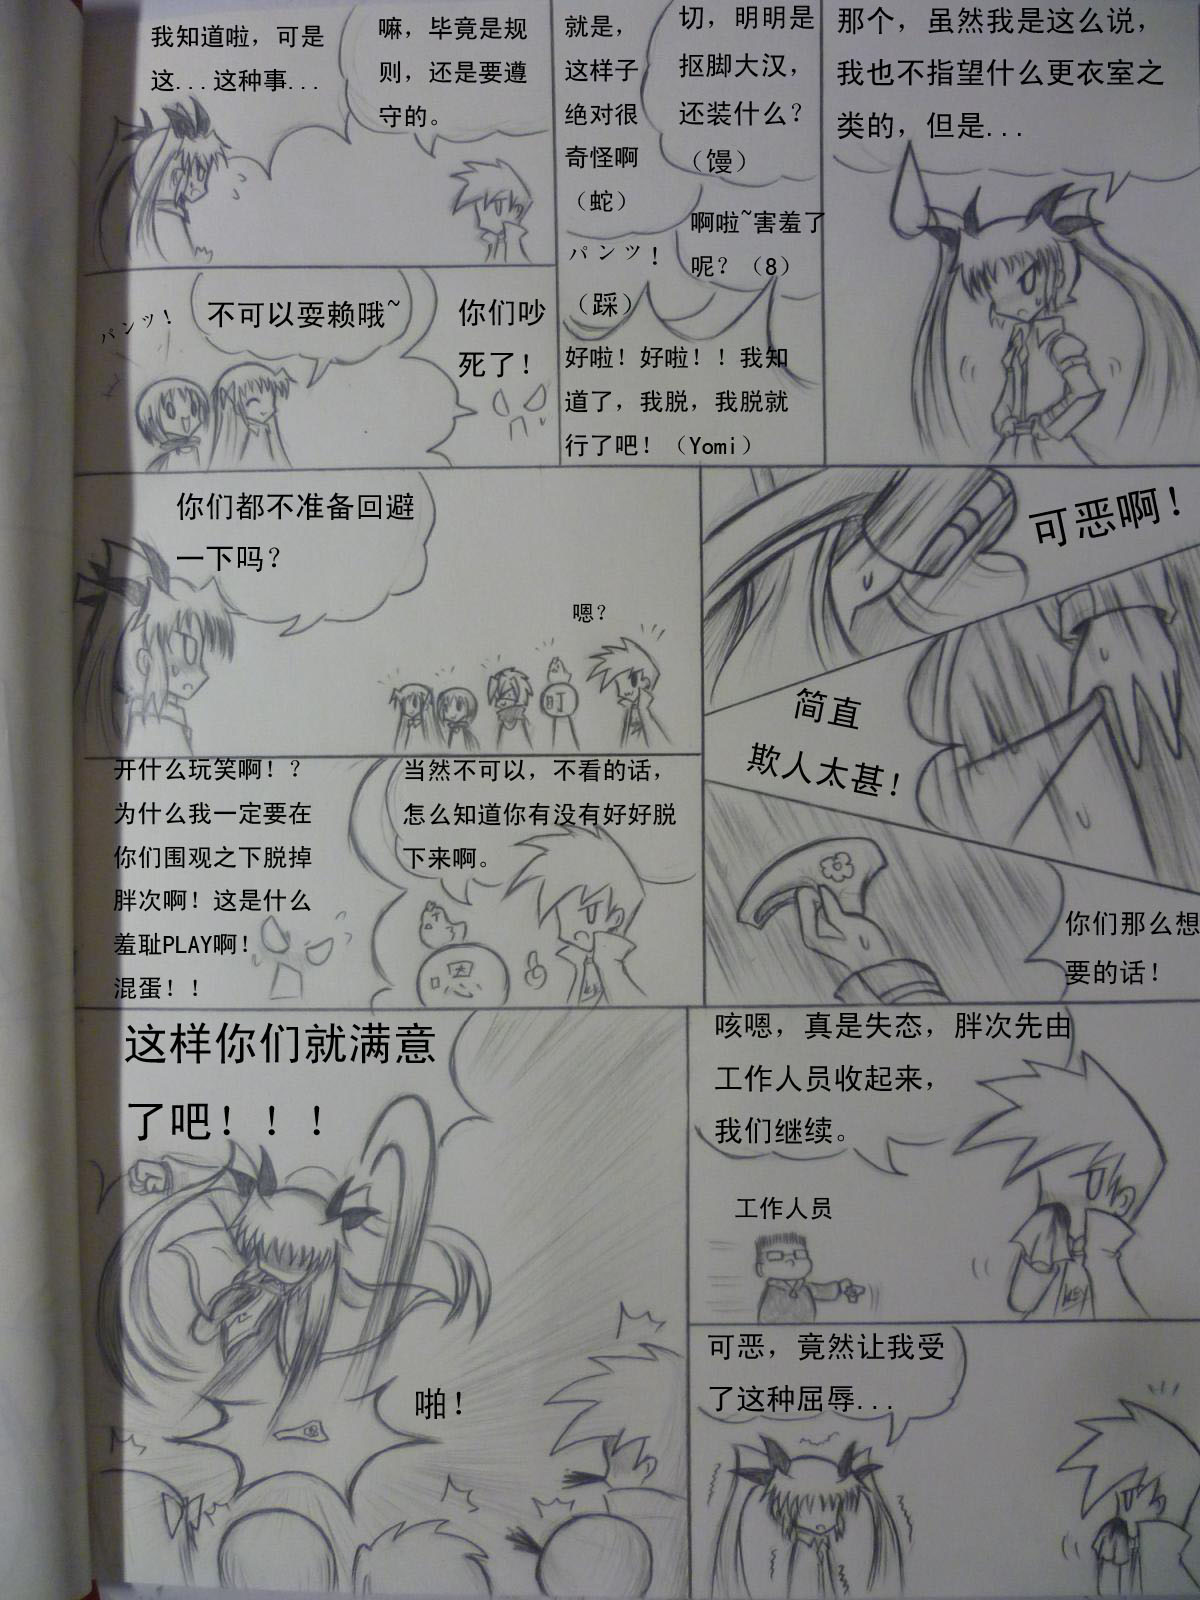 我知道啦，可是
这...这种事...
嘛，毕竟是规
则，还是要遵
守的。
就是，
这样子
绝对很
奇怪啊
（蛇）
切，明明是
抠脚大汉，
还装什么？
（馒）
パンツ！
（踩）
啊啦~害羞了
呢？（8）
好啦！好啦！！我知
道了，我脱，我脱就
行了吧！（Yomi）
那个，虽然我是这么说，
我也不指望什么更衣室之
类的，但是...
パンツ！
不可以耍赖哦~
你们吵
死了！
你们都不准备回避
一下吗？
嗯？
町
可恶啊！
简直
欺人太甚！
你们那么想
要的话！
开什么玩笑啊！？
为什么我一定要在
你们围观之下脱掉
胖次啊！这是什么
羞耻PLAY啊！
混蛋！！
当然不可以，不看的话，
怎么知道你有没有好好脱
下来啊。
嗯
这样你们就满意
了吧！！！
啪！
咳嗯，真是失态，胖次先由
工作人员收起来，
我们继续。
工作人员
可恶，竟然让我受
了这种屈辱...